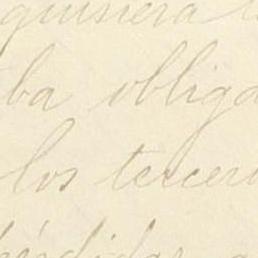 quisiera
ba obliga
los tercer
pérdidas